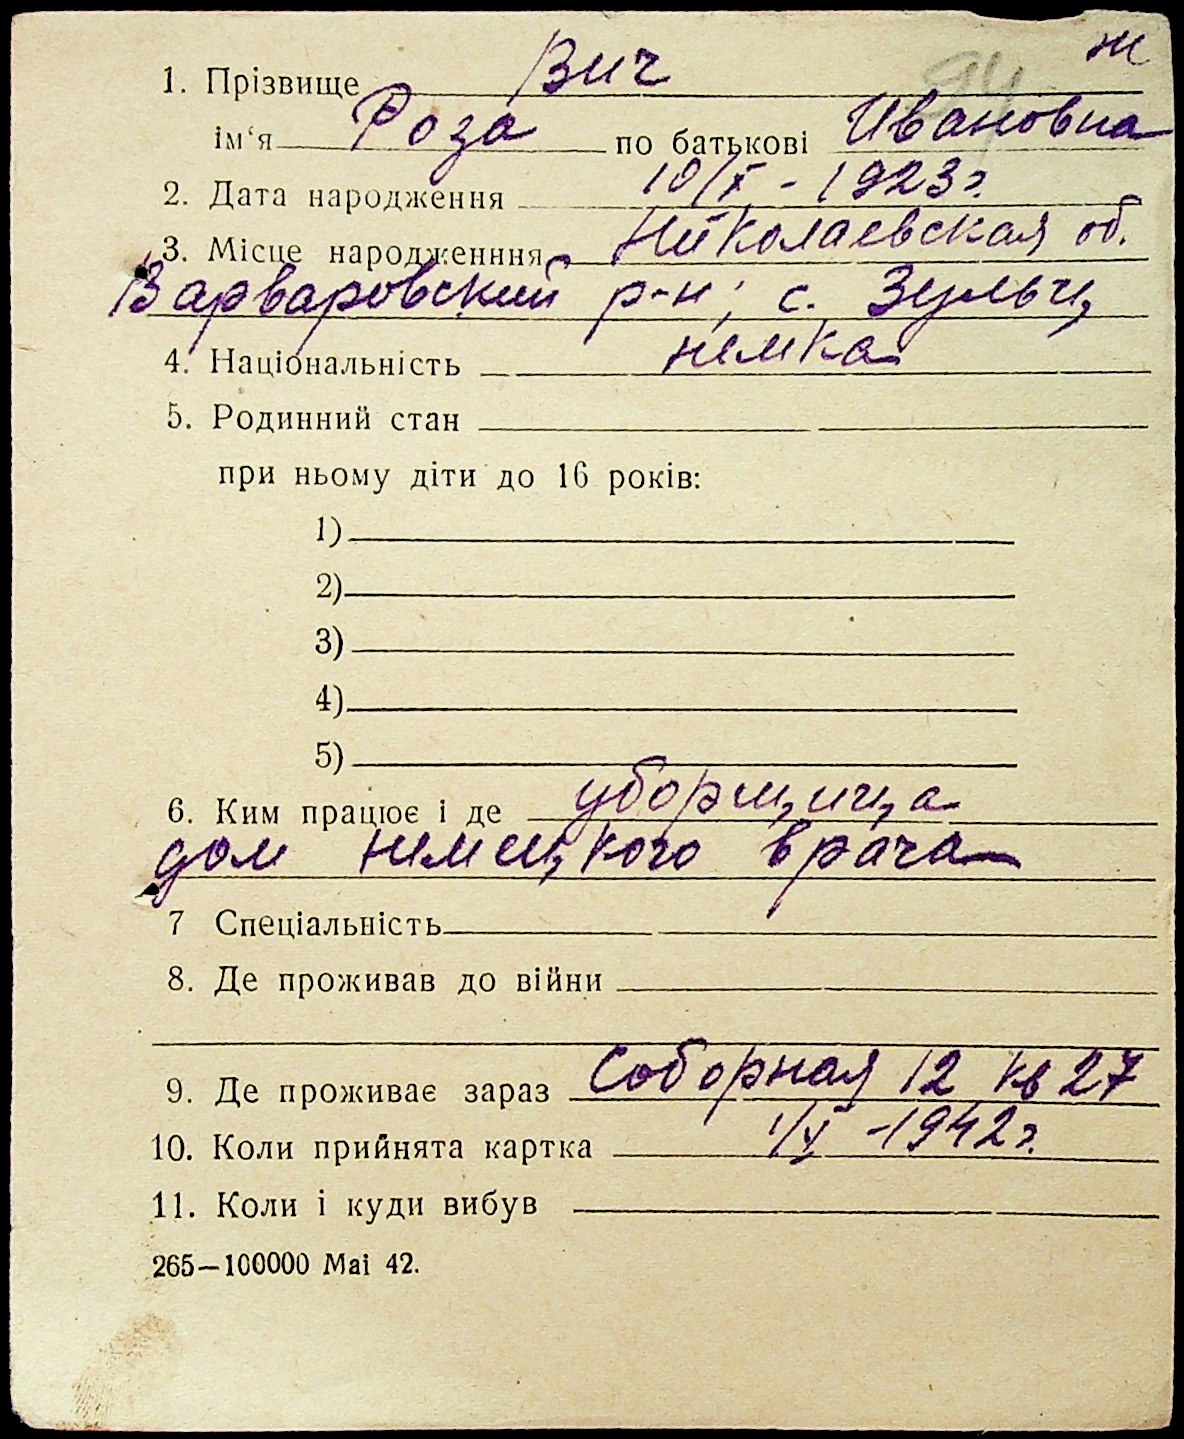 ж
1. Прізвище Вич
ім‘я Роза по батькові Ивановна
2. Дата народження 10/X - 1923 г.
3. Місце народженння Николаевская об.
Варваровский р-н, с. Зульц,
4. Національність немка
5. Родинний стан
при ньому діти до 16 років:
1)
2)
3)
4)
5)
6. Ким працює і де уборщица
дом немецкого врача
7 Спеціальність
8. Де проживав до війни
9. Де проживає зараз Соборная 12 кв 27
10. Коли прийнята картка 1/V - 1942 г.
11. Коли і куди вибув
265—100000 Mai 42.